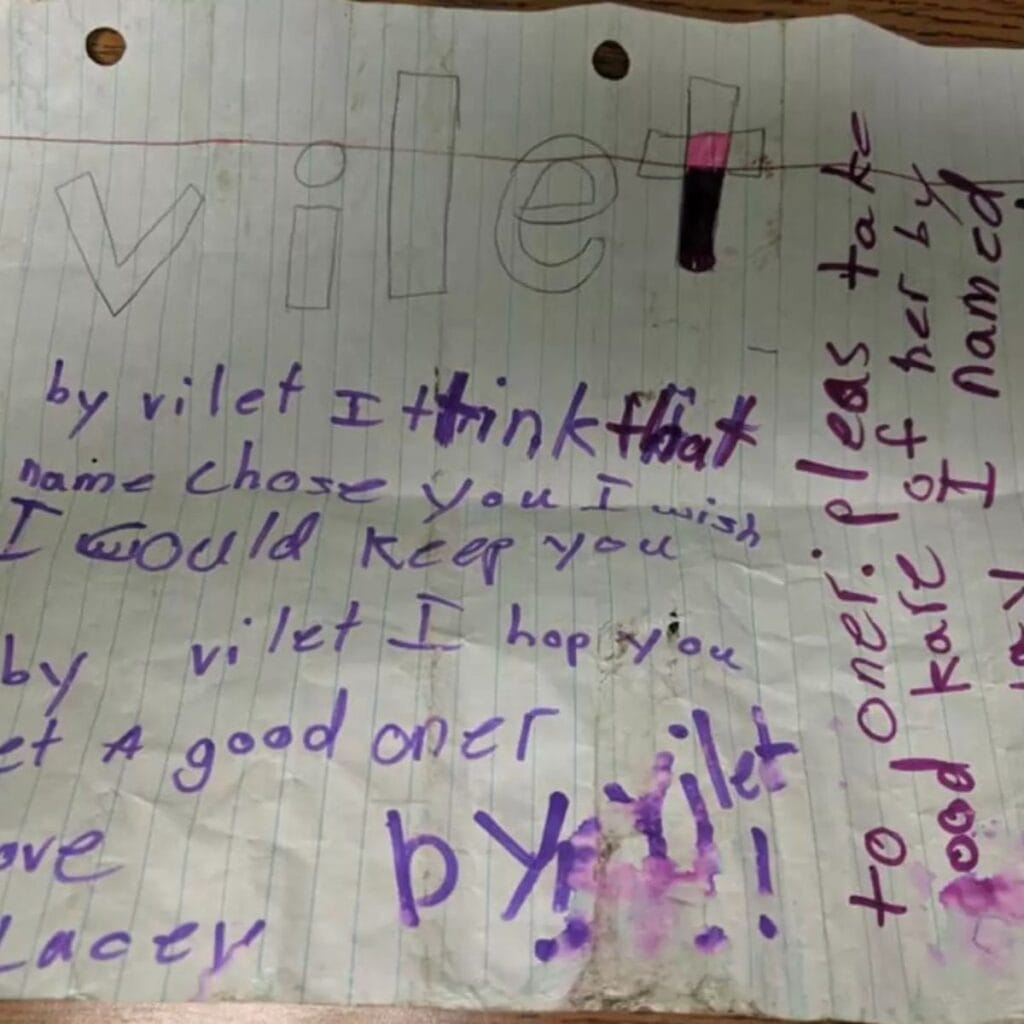 vilet
by vilet I think that
name chose you I wish
I would keep you
by vilet I hop you
et A good oner
ove
Lacey
by vilet
!
to oner. pleas take
ood kare of her by
I named